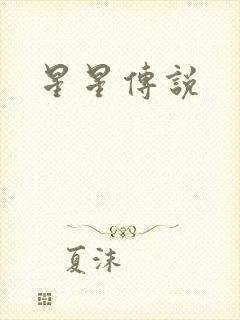 星星傳說
夏沫